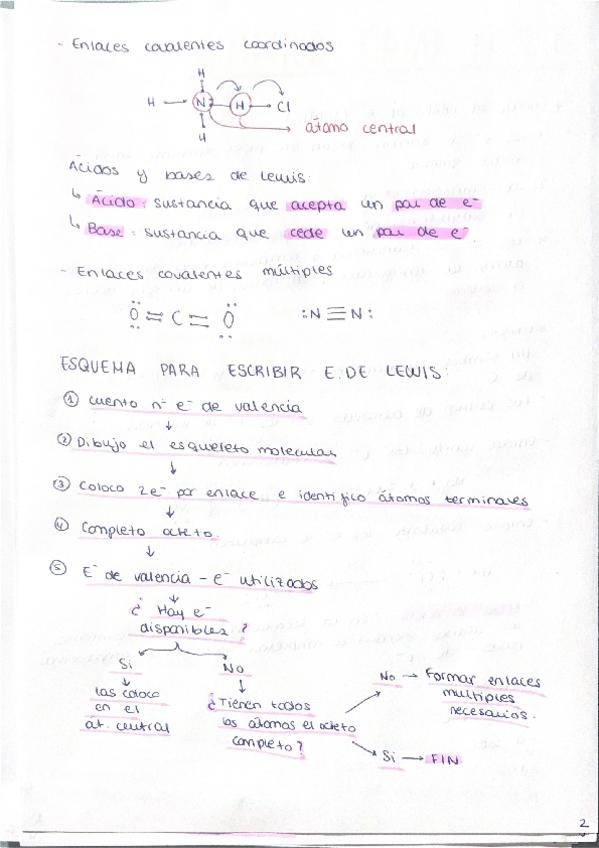 - Enlaces covalentes coordinados
H
H — N — H → Cl
H
átomo central
Ácidos y bases de Lewis:
↳ Ácido: sustancia que acepta un par de e⁻
↳ Base: sustancia que cede un par de e⁻
- Enlaces covalentes múltiples
O = C = O :N≡N:
ESQUEMA PARA ESCRIBIR E. DE LEWIS:
① Cuento nº e⁻ de valencia
↓
② Dibujo el esqueleto molecular
↓
③ Coloco 2e⁻ por enlace e identifico átomos terminales
↓
④ Completo octeto.
↓
⑤ E⁻ de valencia - e⁻ utilizados
↓
¿ Hay e⁻
disponibles ?
Si No
↓ ↓
los coloco
en el
at. central
¿Tienen todos
los átomos el octeto
completo?
No → Formar enlaces
multiples
necesarios.
Si → FIN
2